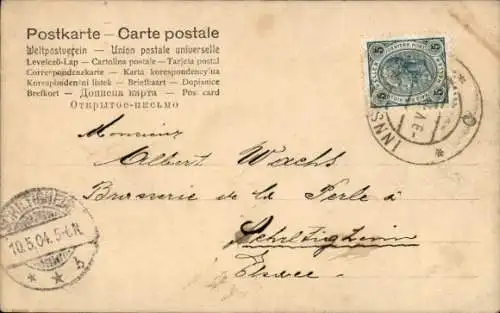 Postkarte — Carte postale
Weltpostverein — Union postale universelle
Levelező-Lap — Cartolina postale — Tarjeta postal
Correspondenzkarte — Karta korespondencyjna
Korespondenční lístek — Briefkaart — Dopisnice
Brefkort — Дописна карта — Post card
Открытое-письмо
5 5
INNS
Monsieur
Albert Wachs
Brasserie de la Perle à
Schiltigheim
Elsace
10.5.04. 5-6.N.
* * b